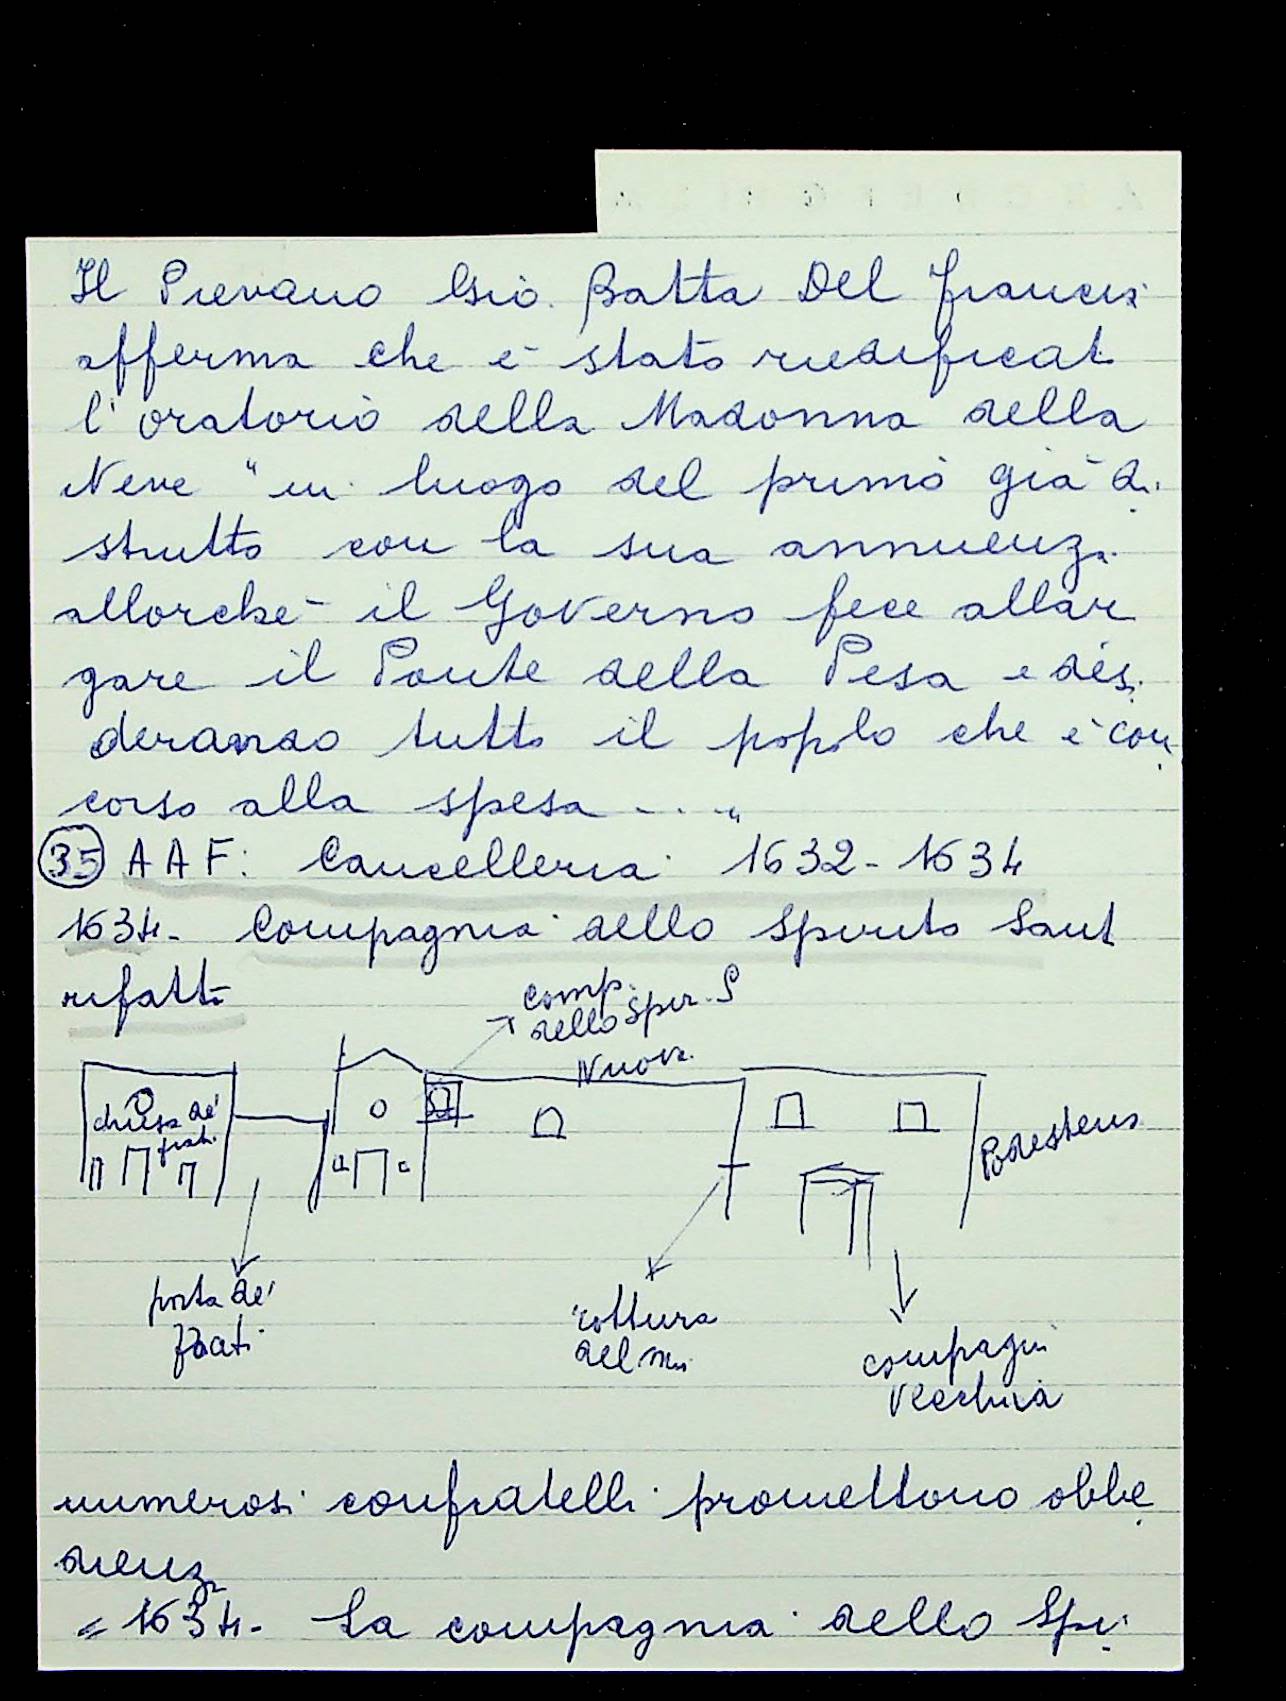 Il Pievano Gio. Batta Del Francis
afferma che è stato riedificat
l'oratorio della Madonna della
Neve "in luogo del primo già di
strutto con la sua annuenza
allorchè il Governo fece allar
gare il Ponte della Pesa e desi
derando tutto il popolo che è con
corso alla spesa ...."
35 AAF: Cancelleria 1632-1634
1634- Compagnia dello Spirito Sant
rifatto
comp.
dello Spir. S
Nuova
chiesa de'
frati
Podesteria
porta de'
frati
rottura
del
compagni
vecchia
numerosi confratelli promettono obbe
dienza
= 1634- La compagnia dello Spi